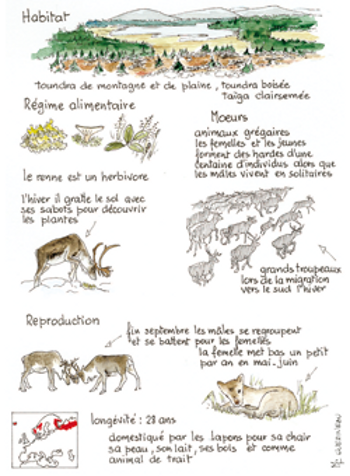 Habitat
toundra de montagne et de plaine, toundra boisée
taïga clairsemée
Régime alimentaire
le renne est un herbivore
l'hiver il gratte le sol avec
ses sabots pour découvrir
les plantes
Moeurs
animaux grégaires
les femelles et les jeunes
forment des hardes d'une
centaine d'individus alors que
les mâles vivent en solitaires
grands troupeaux
lors de la migration
vers le sud l'hiver
Reproduction
fin septembre les mâles se regroupent
et se battent pour les femelles
la femelle met bas un petit
par an en mai-juin
longévité : 28 ans
domestiqué par les lapons pour sa chair
sa peau, son lait, ses bois et comme
animal de trait